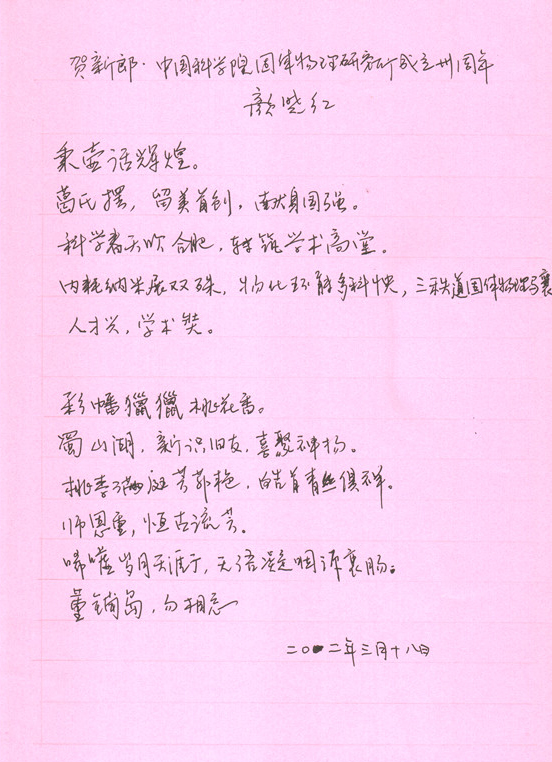 贺新郎·中国科学院固体物理研究所成立卅周年
颜晓红
秉壶话辉煌。
葛氏摆,留美首创,献身国强。
科学春天吹合肥,转筑学术高堂。
内耗纳米展双殊,物化环能多科快,三秩道固体物理与襄
人才兴,学术奘。
彩幡獵獵桃花香。
蜀山湖,新识旧友,喜聚神场。
桃李满庭芳郁艳,皓首青丝俱祥。
师恩重,恒古流芳。
唏嘘岁月天涯行,无语凝咽诉衷肠。
董铺岛,勿相忘
二〇一二年三月十八日